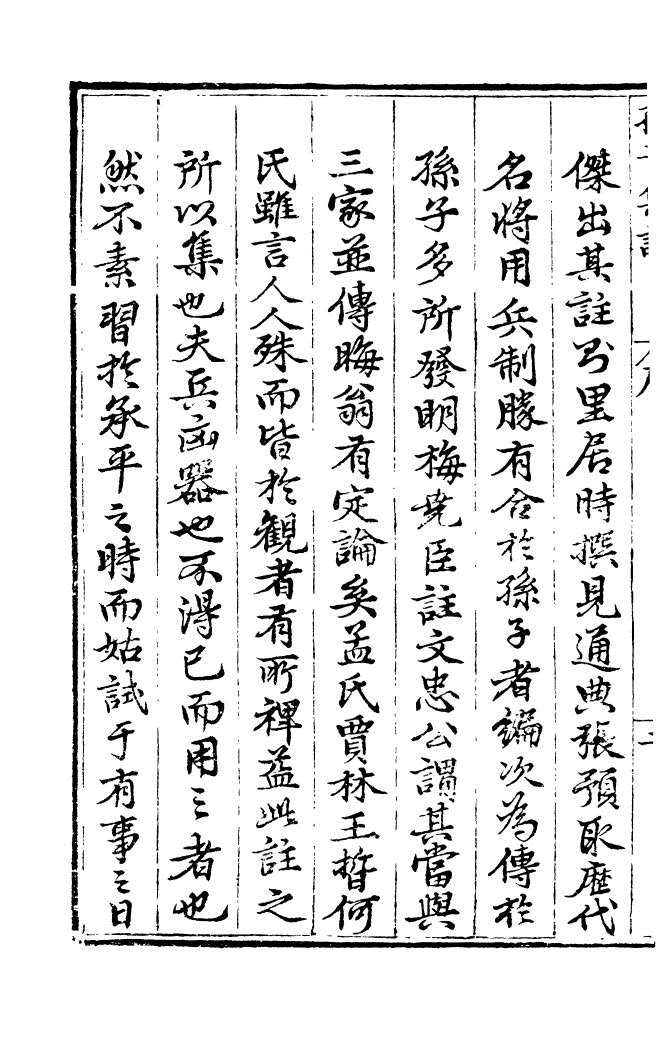 傑出其註于里居時撰見通典張預取歷代
名將用兵制勝有合於孫子者編次為傳於
孫子多所發明梅堯臣註文忠公謂其當與
三家並傳晦翁有定論矣孟氏賈林王晳何
氏雖言人人殊而皆於觀者有所裨益此註之
所以集也夫兵凶器也不得已而用之者也
然不素習於承平之時而姑試于有事之日